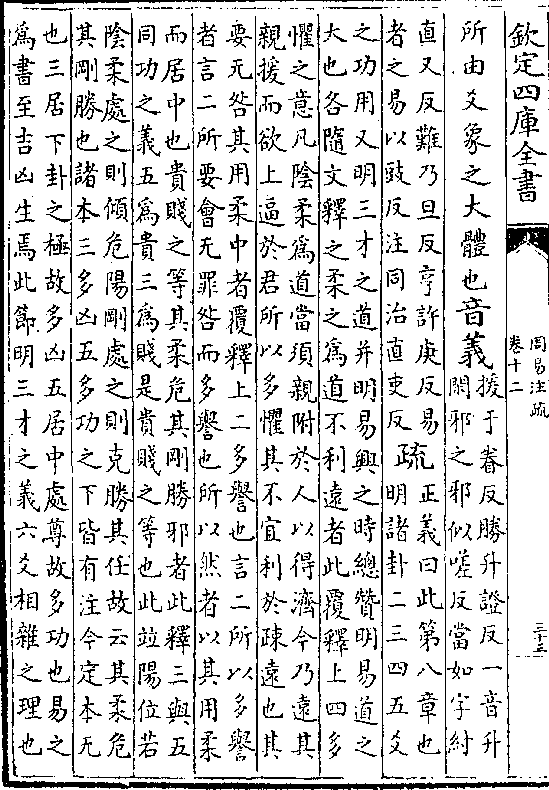 欽定四庫全書
周易注疏
卷十二
三十三
所由爻象之大體也音義
援于眷反勝升證反一音升
閑邪之邪似嗟反當如字紂
直又反難乃旦反亨許庚反易
者之易以豉反注同治直吏反
疏
正義曰此第八章也
明諸卦二三四五爻
之功用又明三才之道并明易興之時總贊明易道之
大也各隨文釋之柔之爲道不利遠者此覆釋上四多
懼之意凡陰柔爲道當須親附於人以得濟今乃遠其
親援而欲上逼於君所以多懼其不宜利於疎遠也其
要无咎其用柔中者覆釋上二多譽也言二所以多譽
者言二所要會无罪咎而多譽也所以然者以其用柔
而居中也貴賤之等其柔危其剛勝邪者此釋三與五
同功之義五爲貴三爲賤是貴賤之等也此竝陽位若
陰柔處之則傾危陽剛處之則克勝其任故云其柔危
其剛勝也諸本三多凶五多功之下皆有注今定本无
也三居下卦之極故多凶五居中處尊故多功也易之
爲書至吉凶生焉此節明三才之義六爻相雜之理也